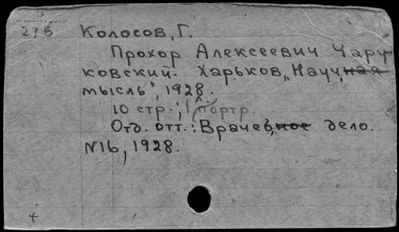 215 Колосов, Г.
Прохор Алексеевич Чару
ковский. Харьков, „Научная
мысль", 1928.
10 стр.; 1 портр.
Отд. отт.: Врачебное дело.
N16, 1928.
+